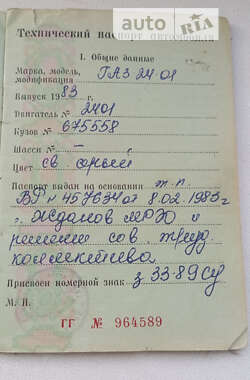 auto RIA
Технический пас
I. Общие данные
Марка, модель,
модификация ГАЗ 24 01
Выпуск 1983 г.
Двигатель № 2401
Кузов № 675558
Шасси № —
Цвет св. серый
Паспорт выдан на основании т.п.
ВР н 457634 от 8.02.1983г
г. Жданов МРЭО и
решения сов. труд.
коллектива
Присвоен номерной знак з 33-89 СУ
М. П.
ГГ № 964589